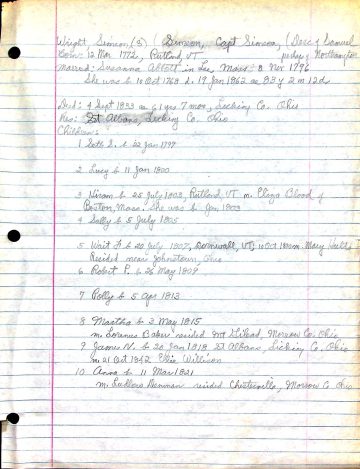 Wright Simeon, (3) (Simeon, Capt Simeon, (Desc of Samuel
Born: 12 Mar 1772, Rutland, VT Judge, Northampton
Married: Susanna Abbott in Lee, Mass. 8 Nov 1796
She was b 10 Oct 1768 d. 19 Jan 1862 ae 93 y 2 m 12 d.
Died: 4 Sept 1833 ae 61 yrs 7 mos, Licking Co. Ohio
Res: St Albans, Licking Co. Ohio
Children:
1 Seth S. b 22 Jan 1797
2 Lucy b 11 Jan 1800
3 Hiram b 25 July 1803, Rutland, VT m. Eliza Blood of
Boston, Mass. She was b Jan 1803
4 Sally b 5 July 1805
5 Wait b 20 July 1807, Cornwall, VT, m. Mary
Resided near Johnstown, Ohio
6 Robert P. b 26 May 1809
7 Polly b 5 Apr 1813
8 Martha b 3 May 1815
m. Lorenzo Baker resided Mt Gilead, Morrow Co. Ohio
9 James N. b 20 Jan 1818 St Albans, Licking Co. Ohio
m 21 Oct 1842 Ellis Willison
10 Anna b 11 Mar 1821
m. Denman resided Chesterville, Morrow Co Ohio